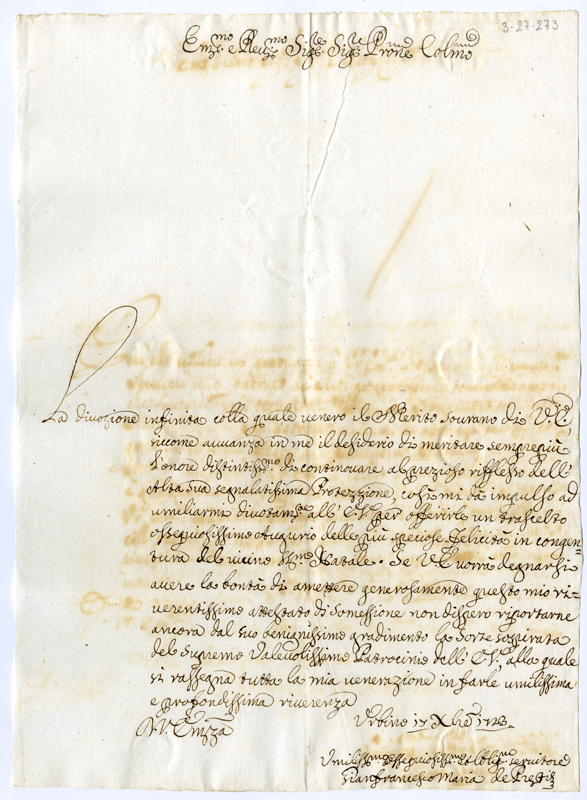 3-27-273
Em:mo e Rev:mo Sig:re Sig:re Prone Colmo
La divozione infinita colla quale venero il Merito sourano di V.E.
siccome auuanza in me il desiderio di meritare sempre più
l'onore distintiss:mo di continouare al prezioso riflesso dell'
Alta sua segnalatissima Protezzione, così mi dà impulso ad
umiliarmi divotam:te all'E.V. per offerirle un trascelto
ossequiosissimo Augurio delle più speciose felicità in congen=
tura del vicino SSmo Natale. Se V.E. vorrà degnarsi
avere la bontà di amettere generosamente questo mio ri=
verentissimo attestato di Somessione non dispero riportarne
ancora dal suo benignissimo gradimento la Sorte sospirata
del Supremo Valeuolissimo Patrocinio dell'E.V., alla quale
si rassegna tutta la mia venerazione in farle umilissima
e profondissima riverenza
Di V. Emza
Urbino 17 Xbre 1728.
Umiliss:mo ossequiosiss:mo et Obligmo servitore
Gianfrancesco Maria de